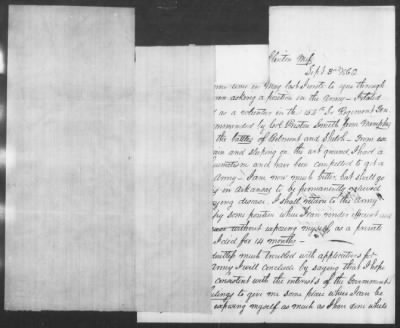 Clinton Miss
Sept 3rd 1862
some time in May last I wrote to you through
asking a position in the Army - I stated
as a volunteer in the 154th Sr Regiment Ten.
commanded by Col Preston Smith from Memphis
the battles of Belmont and Shiloh - From
and sleeping on the wet ground, I had a
and have been compelled to get a
Army - I am now much better, but shall go
in Arkansas to be permanently relieved
disease. I shall return to the Army
some position where I can render service and
without exposing myself, as a private
I did for 14 months -
much troubled with applications for
Army I will conclude by saying that I hope
consistent with the interests of the Government
to give me some place where I can be
exposing myself as much as I have done while